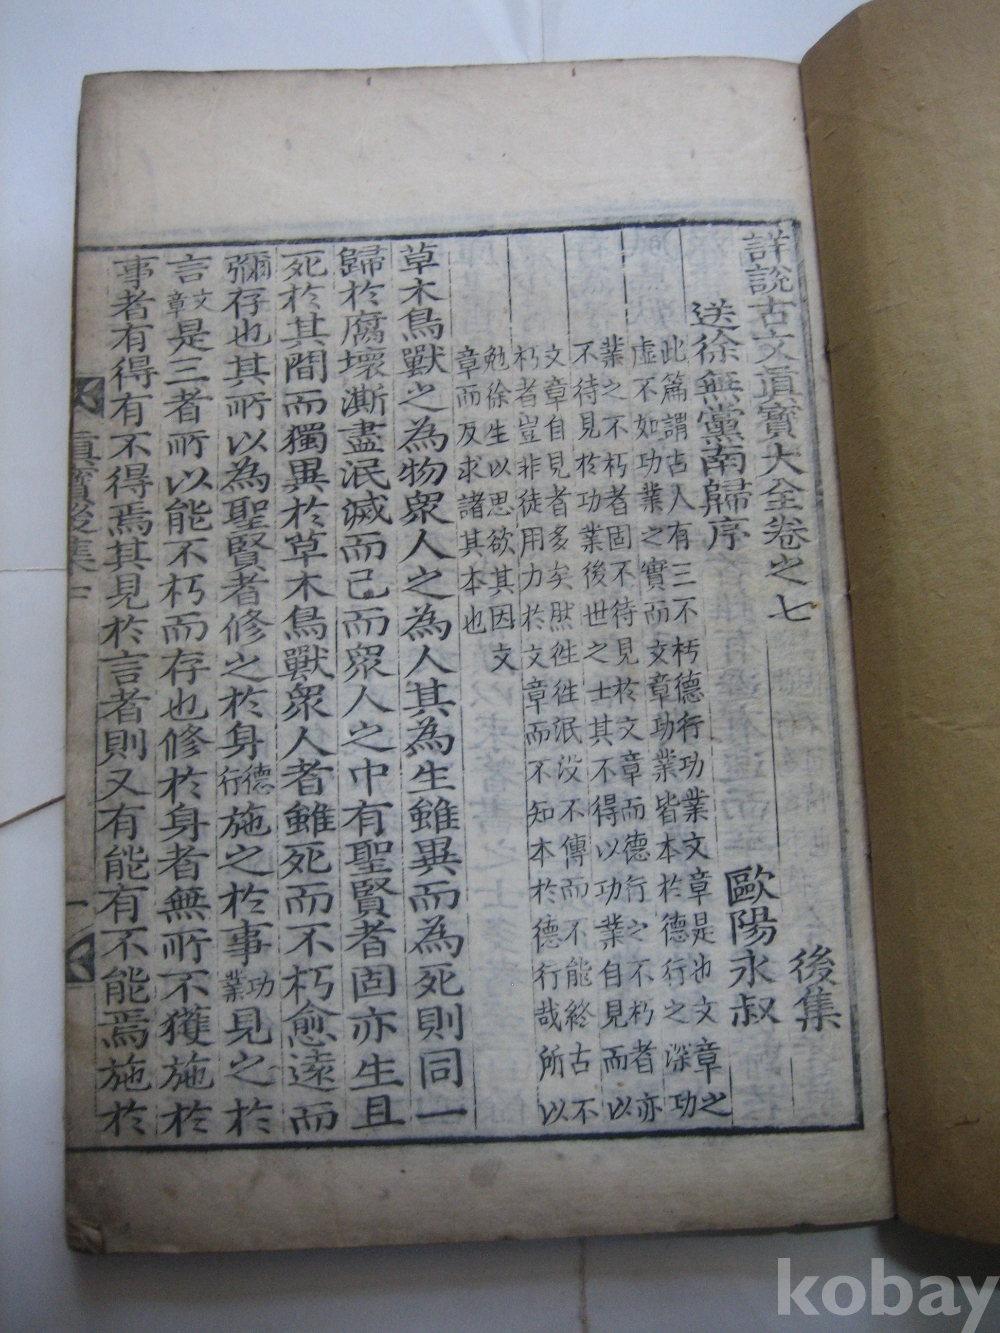 詳說古文眞寶大全卷之七
後集
送徐無黨南歸序
歐陽永叔
此篇謂古人有三不朽德行功業文章是也文章之
虛不如功業之實而文章功業皆本於德行之深功
業之不朽者固不待見於文章而德行之不朽者亦
不待見於功業後世之士其不得以功業自見而以
文章自見者多矣然往往泯没不傳而不能終古不
朽者豈非徒用力於文章而不知本於德行哉所以
勉徐生以思欲其因文
章而反求諸其本也
草木鳥獸之為物衆人之為人其為生雖異而為死則同一
歸於腐壞澌盡泯滅而已而衆人之中有聖賢者固亦生且
死於其間而獨異於草木鳥獸衆人者雖死而不朽愈遠而
彌存也其所以為聖賢者修之於身德行施之於事功業見之於
言文章是三者所以能不朽而存也修於身者無所不獲施於
事者有得有不得焉其見於言者則又有能有不能焉施於
眞寶後集七
一
kobay